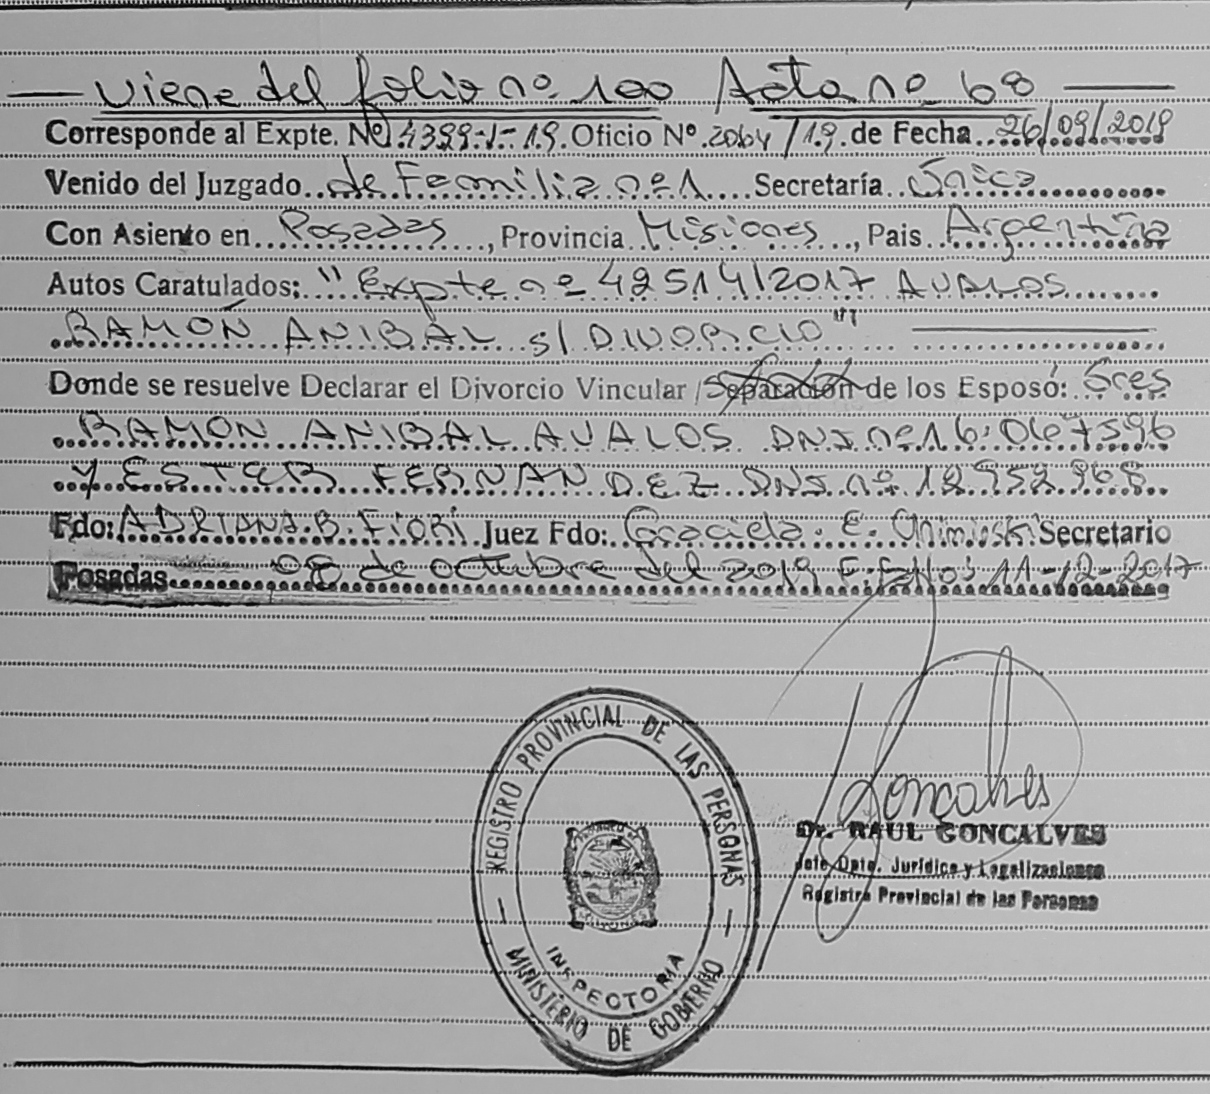 Viene del folio nº 100 Acta nº 68
Corresponde al Expte. Nº 4399-J-19. Oficio Nº 2064/19. de Fecha 26/09/2019
Venido del Juzgado de Familia nº 1 Secretaría Única
Con Asiento en Posadas, Provincia Misiones, Pais Argentina
Autos Caratulados: "Expte nº 42514/2017 AVALOS
RAMÓN ANIBAL s/ DIVORCIO"
Donde se resuelve Declarar el Divorcio Vincular / Separación de los Esposó: Sres
RAMÓN ANIBAL AVALOS DNI nº 16.067596
y ESTER FERNANDEZ DNI nº 18952968
Fdo: ADRIANA.B.FIORI Juez Fdo: Graciela. E. Secretario
Posadas 08 de octubre del 2019 F. Fallo: 11-12-2017
REGISTRO PROVINCIAL DE LAS PERSONAS
MISIONES
INSPECTORIA
MINISTERIO DE GOBIERNO
Goncalves
Dr. RAUL GONCALVES
Jefe Dpto. Jurídico y Legalizaciones
Registro Provincial de las Personas